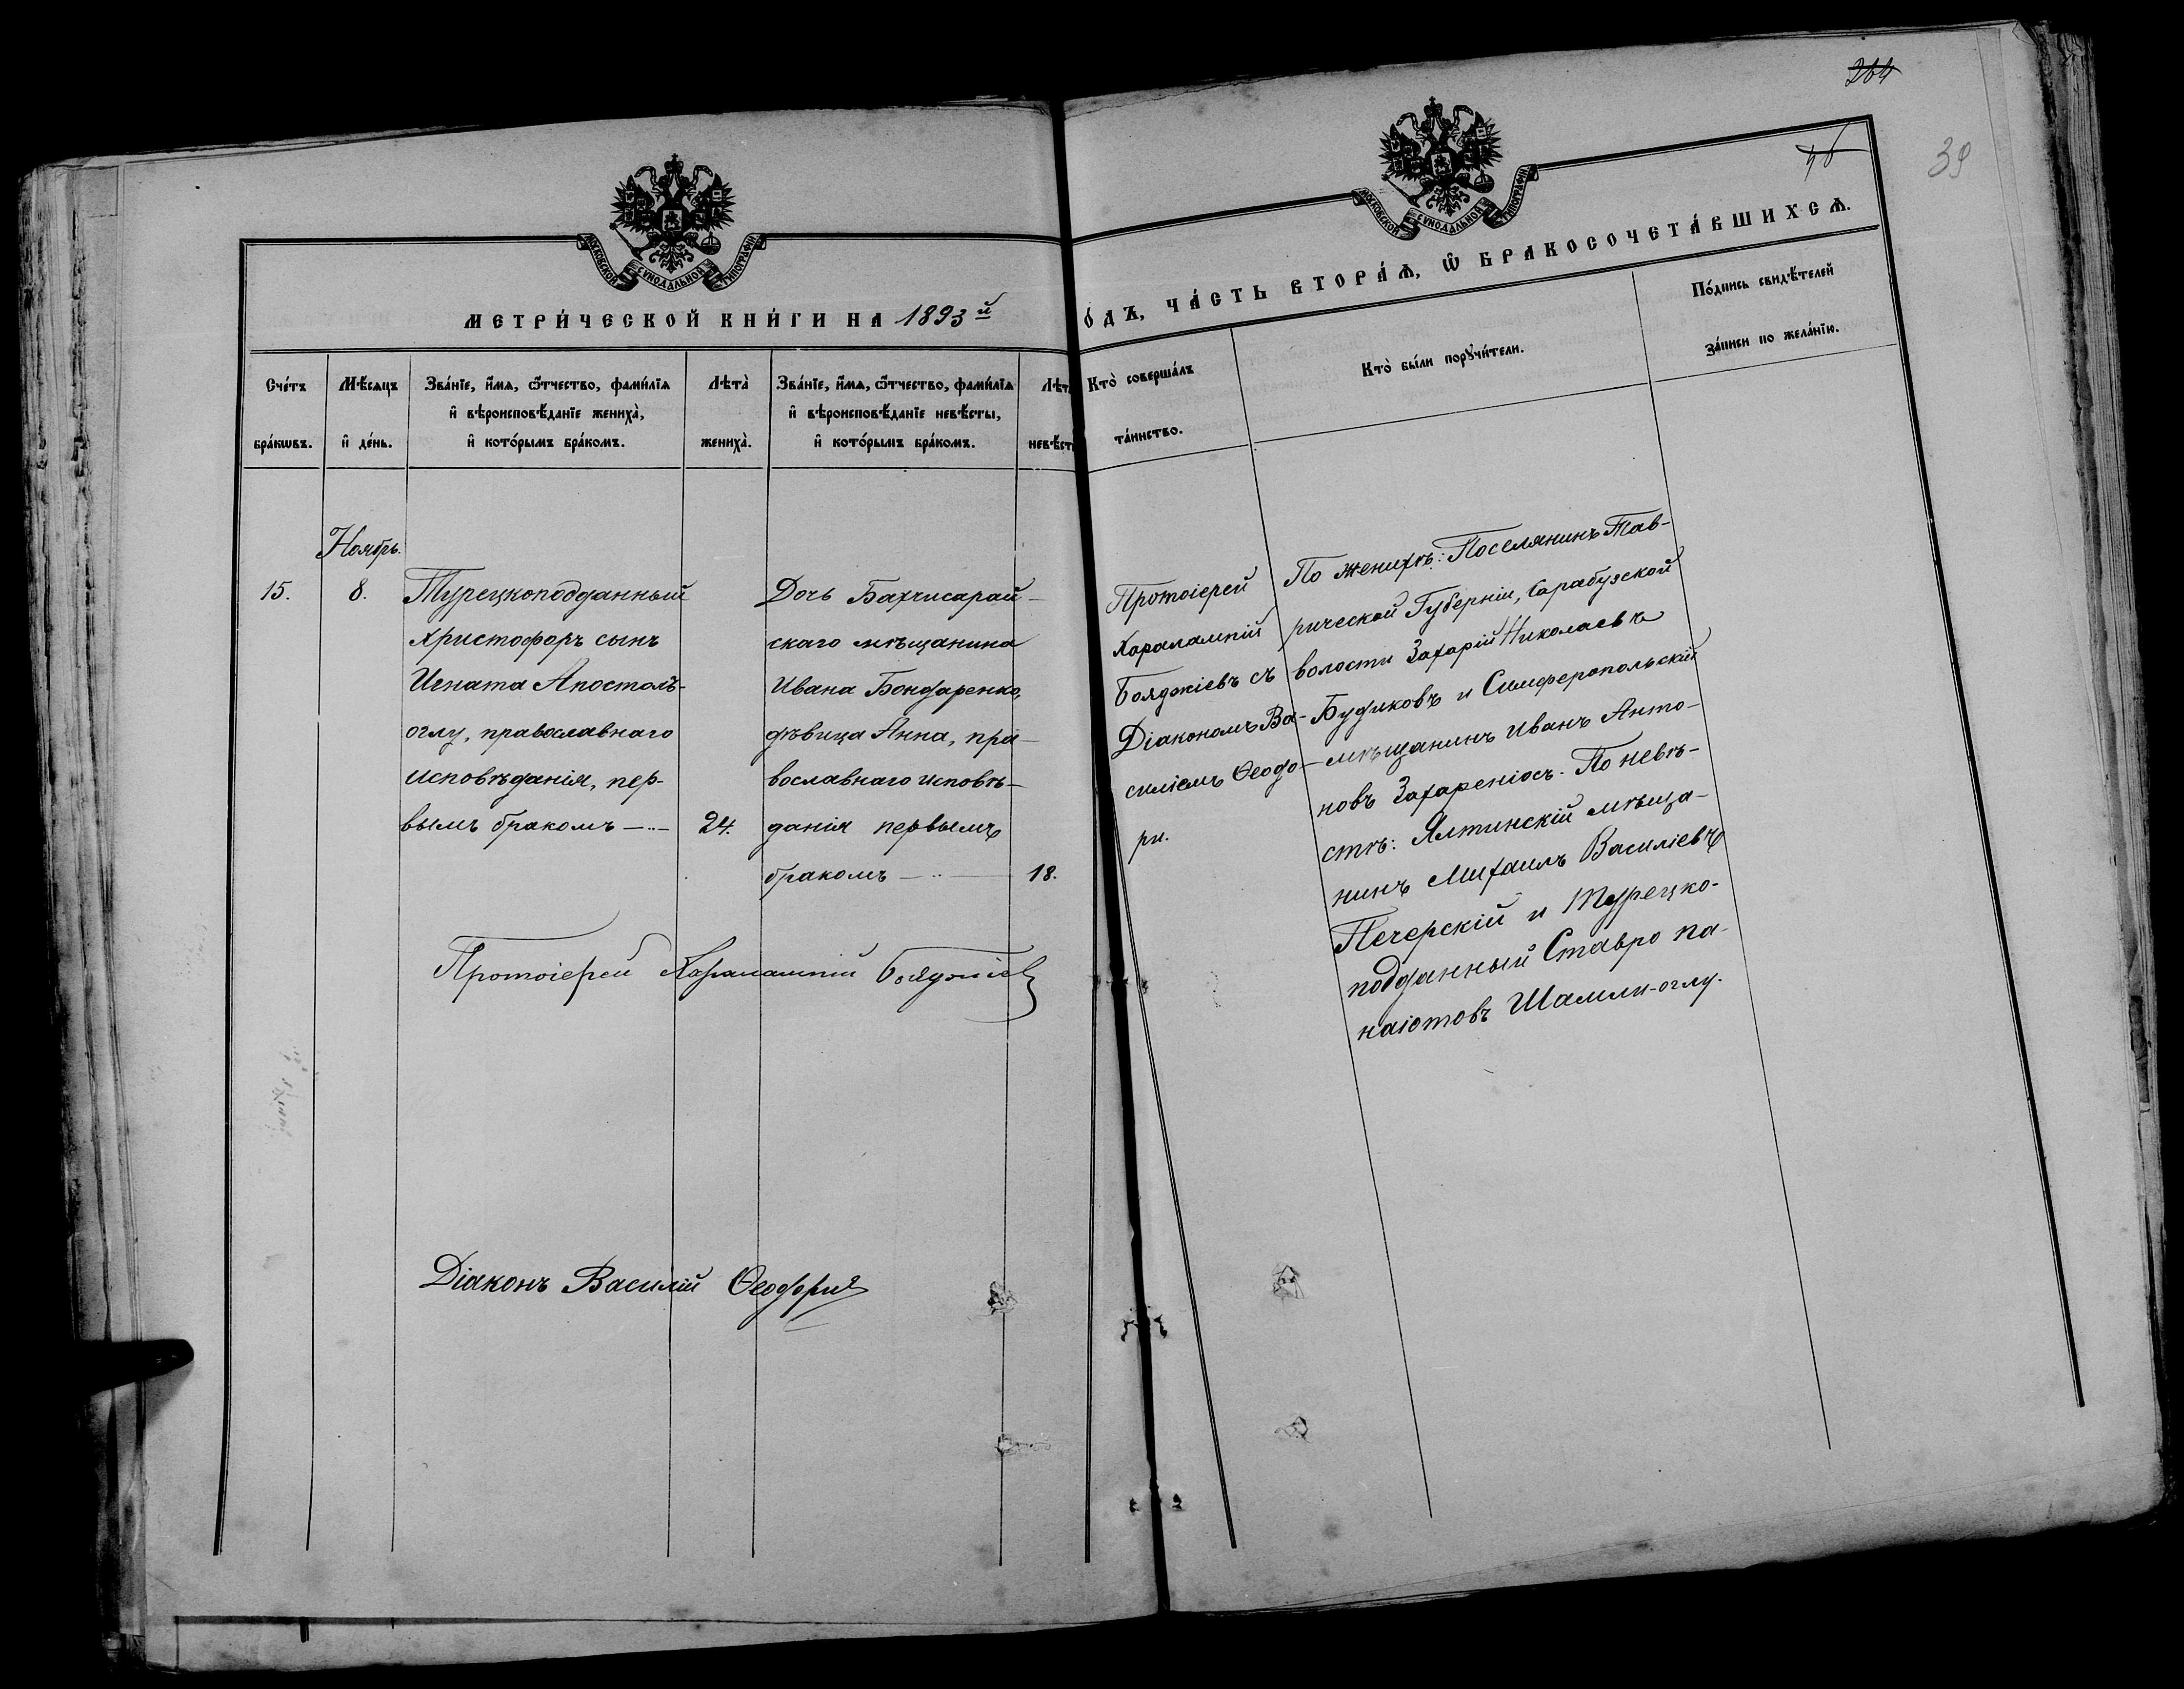 264
46
39
МОСКОВСКОЙ СѴНОДАЛЬНОЙ ТИПОГРАФІИ
МОСКОВСКОЙ СѴНОДАЛЬНОЙ ТИПОГРАФІИ
МЕТРИ́ЧЕСКОЙ КНИ́ГИ НА 1893й
О́ДЪ, ЧА́СТЬ ВТОРА́Ѧ, Ѡ҆ БРАКОСОЧЕТА́ВШИХСѦ.
Сче́тъ бра́кѡвъ.
Мѣ́сяцъ и҆ де́нь.
Зва́нїе, и҆́мѧ, ѻ҆́тчество, фами́лїѧ
и҆ вѣроисповѣ́данїе жениха̀,
и҆ кото́рымъ бра́комъ.
Лѣта̀ жениха̀.
Зва́нїе, и҆́мѧ, ѻ҆́тчество, фами́лїѧ
и҆ вѣроисповѣ́данїе невѣ́сты,
и҆ кото́рымъ бра́комъ.
Лѣт
невѣ́ст
Кто̀ соверша́лъ
та́инство.
Кто̀ бы́ли порꙋчи́тели.
По́дпись свидѣ́телей
за́писи по жела́нїю.
Ноябрь.
15.
8.
Турецкоподданный
Христофоръ сынъ
Игната Апостолъ-
оглу, православнаго
исповѣданія, пер-
вымъ бракомъ —..—
24.
Дочь Бахчисарай-
скаго мѣщанина
Ивана Бондаренко,
дѣвица Анна, пра-
вославнаго исповѣ-
данія первымъ
бракомъ — .. —
18.
Протоіерей
Харалампій
Бояджіевъ съ
Діакономъ Ва-
силіемъ Ѳеодо-
ри.
По женихѣ: Поселянинъ Тав-
рической Губерніи, Сарабузской
волости Захарій Николаевъ
Будиковъ и Симферопольскій
мѣщанинъ Иванъ Анто-
новъ Захареніосъ. По невѣ-
стѣ: Ялтинскій мѣща-
нинъ Михаилъ Василіевъ
Печерскій и Турецко-
подданный Ставро Па-
наіотовъ Шамли-оглу.
Протоіерей Харалампій Бояджіевъ
Діаконъ Василій Ѳеодори